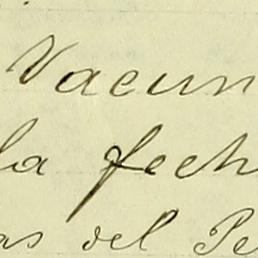 Vacun
la fech
as del Pe